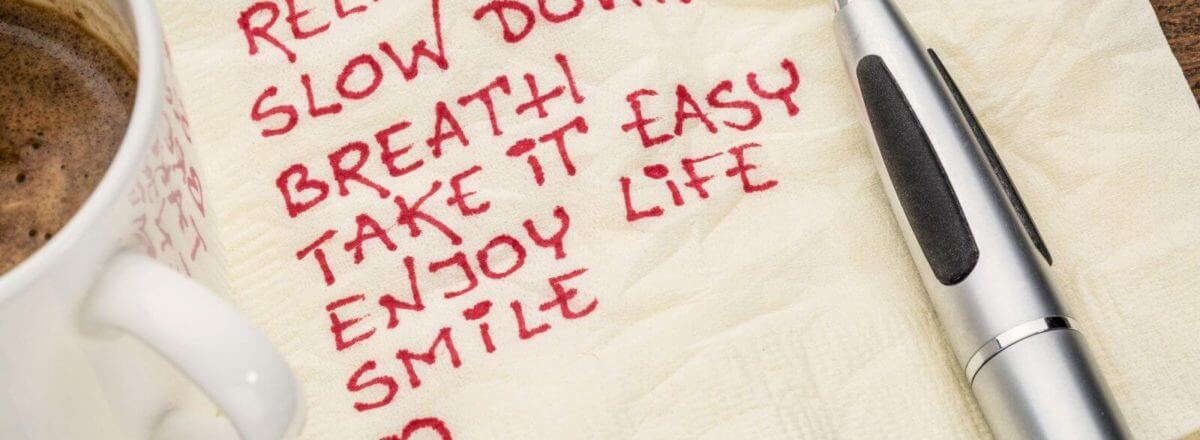 SLOW DOWN
BREATH
TAKE IT EASY
ENJOY LIFE
SMILE